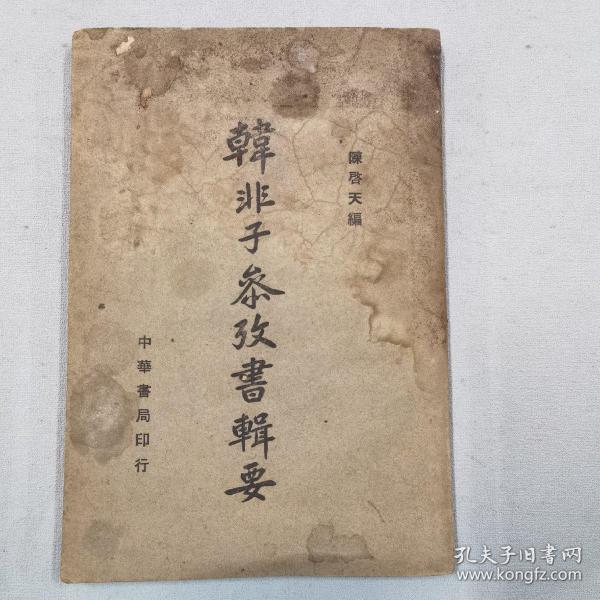 陳啓天編
韓非子參攷書輯要
中華書局印行
孔夫子旧书网
www.kongfz.com